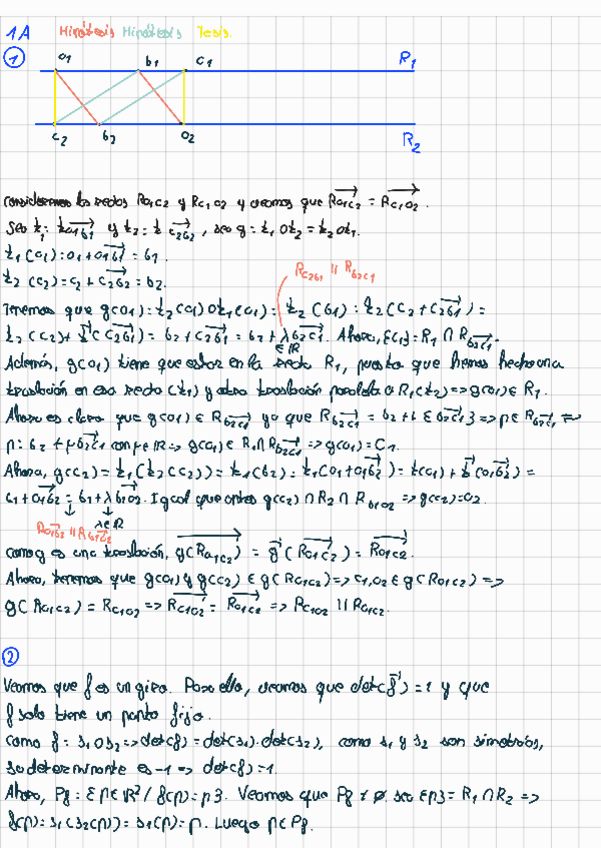 1A Hipótesis Hipótesis Tesis.
① a₁ b₁ c₁ R₁
c₂ b₂ a₂ R₂
consideremos las rectas Ra₁c₂ y Rc₁a₂ y veamos que Ra₁c₂ = Rc₁a₂.
Sea t₁: t a₁b₁ y t₂: t c₂b₂, sea g = t₁ o t₂ = t₂ o t₁.
t₁(a₁) = a₁ + a₁b₁ = b₁.
t₂(c₂) = c₂ + c₂b₂ = b₂.
Rc₂b₁ || Rb₂c₁
Tenemos que g(a₁) = t₂(a₁) o t₁(a₁) = t₂(b₁) = t₂(c₂ + c₂b₁) =
t₂(c₂) + t(c₂b₁) = b₂ + c₂b₁ = b₂ + λb₂c₁. Ahora, {c₁} = R₁ ∩ Rb₂c₁.
∈ℝ
Además, g(a₁) tiene que estar en la recta R₁, puesto que hemos hecho una
traslación en esa recta (t₁) y otra traslación paralela a R₁(t₂) => g(a₁) ∈ R₁.
Ahora es claro que g(a₁) ∈ Rb₂c₁ ya que Rb₂c₁ = b₂ + L{b₂c₁} => p ∈ Rb₂c₁ =>
p = b₂ + μb₂c₁ con μ ∈ ℝ => g(a₁) ∈ R₁ ∩ Rb₂c₁ => g(a₁) = c₁.
Ahora, g(c₂) = t₁(t₂(c₂)) = t₁(b₂) = t₁(a₁ + a₁b₂) = t(a₁) + t(a₁b₂) =
b₁ + a₁b₂ = b₁ + λb₁a₂. Igual que antes g(c₂) ∩ R₂ ∩ Rb₁a₂ => g(c₂) = a₂.
Ra₁b₂ || Rb₁a₂ λ∈ℝ
como g es una traslación, g(Ra₁c₂) = g(Ra₁c₂) = Ra₁c₂.
Ahora, tenemos que g(a₁) y g(c₂) ∈ g(Ra₁c₂) => c₁,a₂ ∈ g(Ra₁c₂) =>
g(Ra₁c₂) = Rc₁a₂ => Rc₁a₂ = Ra₁c₂ => Rc₁a₂ || Ra₁c₂.
②
Veamos que f es un giro. Para ello, veamos que det(f) = 1 y que
f solo tiene un punto fijo.
Como f = s₁ o s₂ => det(f) = det(s₁)·det(s₂), como s₁ y s₂ son simetrías,
su determinante es -1 => det(f) = 1.
Ahora, Pf = {p ∈ ℝ² / f(p) = p}. Veamos que Pf ≠ ø. sea {p} = R₁ ∩ R₂ =>
f(p) = s₁(s₂(p)) = s₁(p) = p. Luego p ∈ Pf.